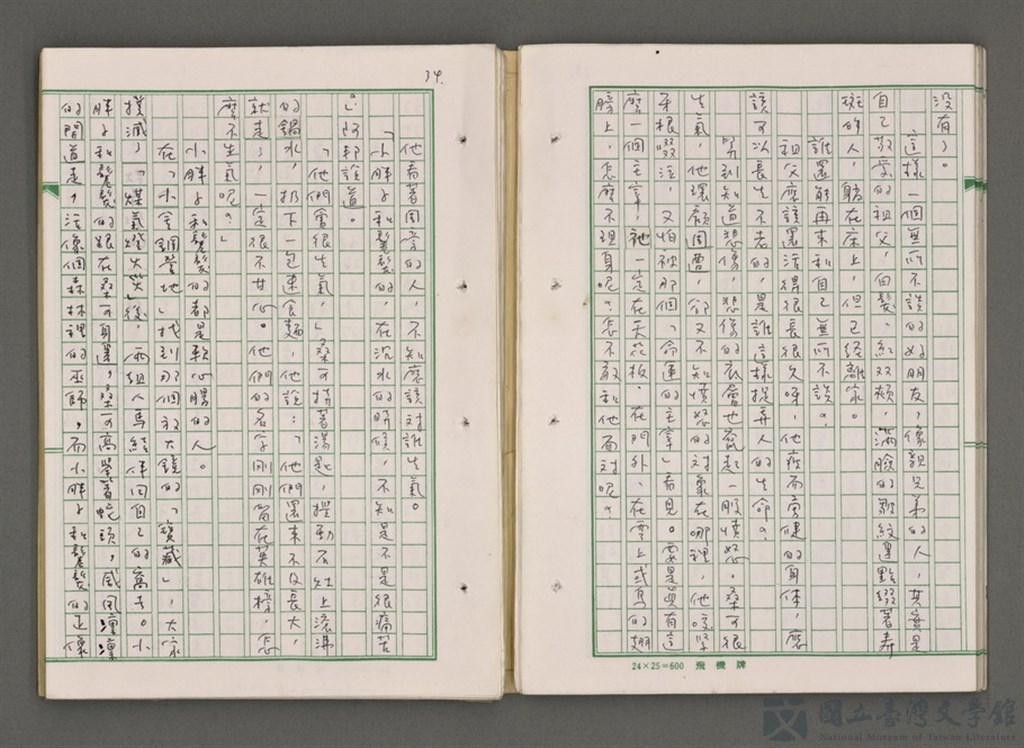 沒有」。
這樣一個無所不談的好朋友，像親兄弟的人，其實是
自己敬愛的祖父，白髮、紅双頰，滿臉的皺紋還點綴著壽
斑的人，躺在床上，但已經離家。
誰還能再來和自己無所不談？
祖父應該還活得很長很久呀，他瘦而旁健的身体，應
該可以長生不老的，是誰這樣捉弄人的生命？
等到知道悲傷，悲傷的衣會也竄起一股憤怒。桑可很
生氣，他環顧周遭，卻又不知憤怒的対象在哪裡，他咬緊
牙根啜泣，又怕被那個「命運的主宰」看見。要是真有這
麼一個主宰，祂一定在天花板、在門外、在雲上或鳥的翅
膀上，怎麼不現身呢？怎不敢和他面対呢？
24×25=600 飛機牌
34.
他看著周遭的人，不知應該対誰生氣。
「小胖子和鬈髮的，在沉水的時候，不知是不是很痛苦
」阿邦說道。
「他們會很生氣，」桑可持著湯匙，攪動石灶上滾沸
的鍋水，扔下一包速食麵，他說：「他們還來不及長大，
就走了，一定很不甘心。他們的名字剛剛留在英雄榜，怎
麼不生氣呢？」
小胖子和鬈髮的都是軟心腸的人。
在「小金鋼營地」找到那個放大鏡的「寶藏」，大家
撲滅了「煤氣燈火災」後，兩組人馬結伴回自己的窩去。小
胖子和鬈髮的跟在桑可身邊，桑可高舉著蛇頭，威風凜凜
的間道走，活像個森林裡的巫師，而小胖子和鬈髮的正像
國立臺灣文學館
National Museum of Taiwan Literature